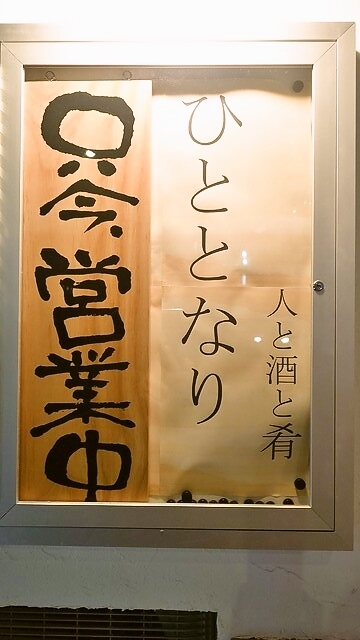 人と酒と肴
ひととなり
只今営業中